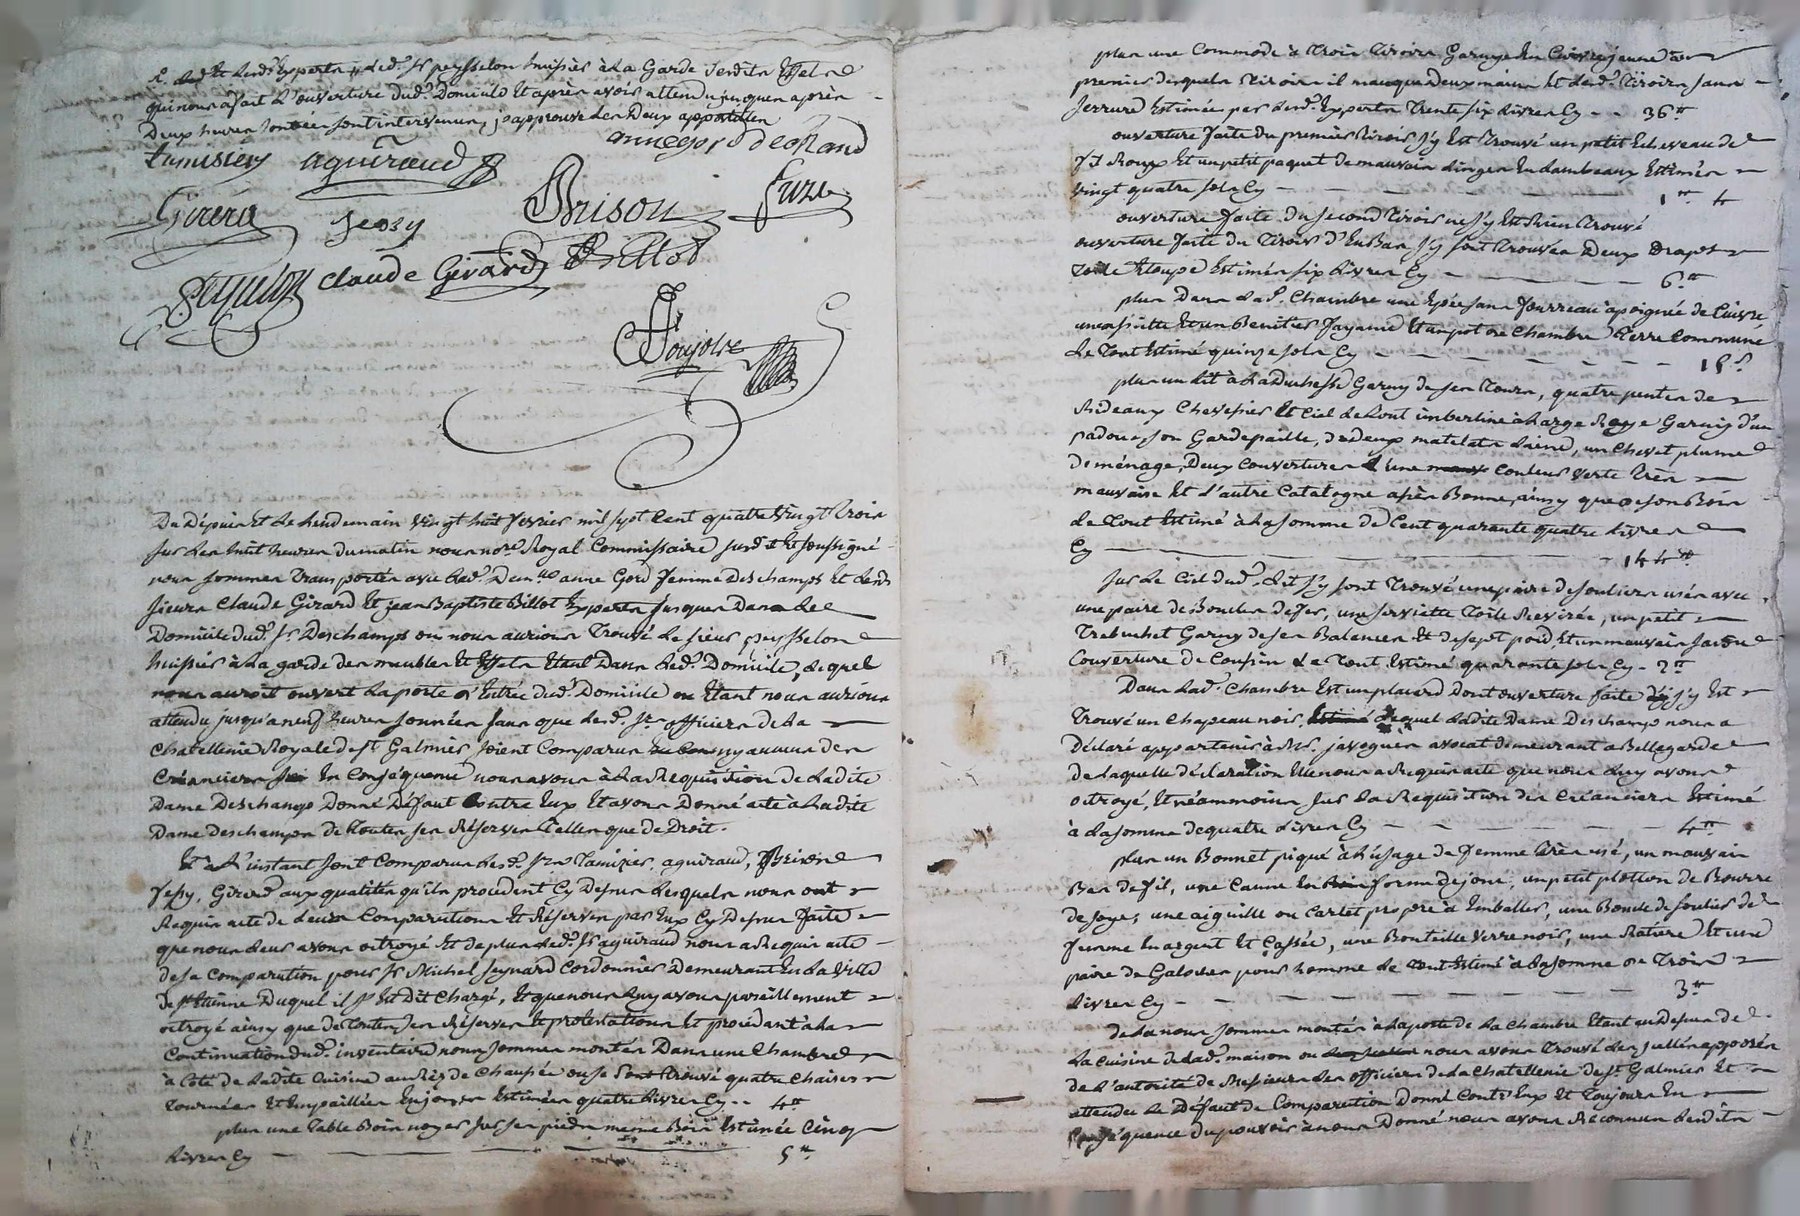 et lesd. Experts, led. Sr peysselon huissier à La Garde desdits Effets
qui nous a fait L'ouverture dud. Domicile Et après avoir attendu jusques après
Deux heures sonnées sont intervenus, j'approuve les Deux apostilles
tamisier aguiraud anne gord deschand
Girerd jessy Brison
peysselon Claude Girard Billot
Du Depuis Et Le lendemain vingt huit fevrier mil sept Cent quatre vingt Trois
sur Les huit heures du matin nous nore Royal Commissaire susd. Et soussigné
nous sommes Transportés avec lad. Demlle anne Gord femme Deschamps Et lesd.
sieurs Claude Girard Et jean Baptiste Billot Experts jusques Dans Le
Domicile dud. Sr Deschamps ou nous aurions Trouvé Le sieur peysselon
huissier à La garde des meubles Et Effets Etant Dans led. Domicile, Lequel
nous auroit ouvert La porte d'Entrée dud. Domicile ou Etant nous aurions
attendu jusqu'a neuf heures sonnées sans que lesd. Srs officiers de La
Chatellenie Royale de St Galmier soient Comparus ny aucun des
Créanciers En Conséquence nous avons à La Requisition de Ladite
Dame Deschamps Donné Défaut Contre Eux Et avons Donné acte à Ladite
Dame Deschamps de Toutes ses Réserves Telles que de Droit.
Et à L'instant sont Comparus lesd. Srs Tamizier, aguiraud, Brison
jessy, Girerd aux qualités qu'ils procedent Cy Dessus Lesquels nous ont
Requis acte de Leurs Comparutions Et Réserves par Eux Cy Dessus faites
que nous Leur avons octroyé Et de plus led. Sr aguiraud nous a Requis acte
de sa Comparution pour Sr Michel seynard Cordonnier Demeurant En La Ville
de St Etienne Duquel il s'Est Dit Chargé, Et que nous Luy avons pareillement
octroyé ainsy que de Toutes ses Réserves Et protestations Et procédant à La
Continuation dud. inventaire nous sommes montés Dans une Chambre
à Coté de Ladite Cuisine au Rez de Chaussée ou se sont Trouvé quatre Chaises
Tournées Et Empaillées En jonc Estimées quatre Livres Cy - - 4 tt
plus une Table Bois noyer sur ses pieds meme Bois Estimée Cinq
Livres Cy - 5 tt
plus une Commode à Trois Tiroirs Garnye En Cuivre jaune au
premier desquels Tiroirs il manque Deux mains Et lesd. Tiroirs sans
serrure Estimée par lesd. Experts Trente six Livres Cy - - 36 tt
ouverture faite du premier Tiroir s'y Est Trouvé un petit Echeveau de
fil Roux Et un petit paquet de mauvais Linges En Lambeaux Estimés
vingt quatre sols Cy - 1 tt 4
ouverture faite du second Tiroir ne s'y Est Rien Trouvé
ouverture faite du Tiroir d'En Bas s'y sont Trouvés Deux Draps
Toile Etoupe Estimés six Livres Cy - 6 tt
plus Dans Lad. Chambre une Epée sans fourreau à poignée de Cuivre
une Assiette Et un Benitier fayance Et un pot de Chambre Terre Commune
Le Tout Estimé quinze sols Cy - 15 s
plus un Lit à La Duchesse Garny de ses Tours, quatre pentes de
Rideaux Chevessier Et Ciel de Lont imberline à Large Raye Garny d'un
padoue, son Gardepaille, de deux matelats Laine, un Chevet plume
De ménage, Deux Couvertures une Couleur verte Très
mauvaise Et L'autre Catalogne assès Bonne, ainsy que de son Bois
Le Tout Estimé à La somme de Cent quarante quatre Livres
Cy - 144 tt
sur Le Ciel dud. Lit s'y sont Trouvé une paire de souliers usés avec
une paire de Boucles de fer, une serviette Toile Revirée, un petit
Trebuchet Garny de ses Balances Et de sept poid, Et un mauvais
Couverture de Coussin Le Tout Estimé quarante sols Cy - 2 tt
Dans Lad. Chambre Est un placard Dont ouverture faite s'y Est
Trouvé un Chapeau noir, Lequel Ladite Dame Deschamps nous a
Déclaré appartenir à Mr. javogues avocat demeurant a Bellegarde
de Laquelle déclaration Elle nous a Requis acte que nous Luy avons
octroyé, Et néammoins sur La Requisition des Créanciers Estimé
à La somme de quatre Livres Cy - 4 tt
plus un Bonnet piqué à L'usage de femme Très usé, un mauvais
Bas de fil, une Canne En forme de jonc, un petit plotton de Bourre
de soye, une aiguille ou Carlet propre à Emballer, une Boucle de soulier de
femme En argent Et Cassée, une Bouteille verre noir, une Ratiere Et une
paire de Galoches pour homme Le Tout Estimé à La somme de Trois
Livres Cy - 3 tt
de La nous sommes montés à La porte de La Chambre Etant au Dessus de
La Cuisine de Lad. maison ou nous avons Trouvé Les scellés apposés
de L'autorité de Messieurs Les officiers de La Chatellenie de St Galmier Et
attendu Le Défaut de Comparution Donné Contr'Eux Et Toujours En
Conséquence du pouvoir à nous Donné nous avons Reconnus Lesdits